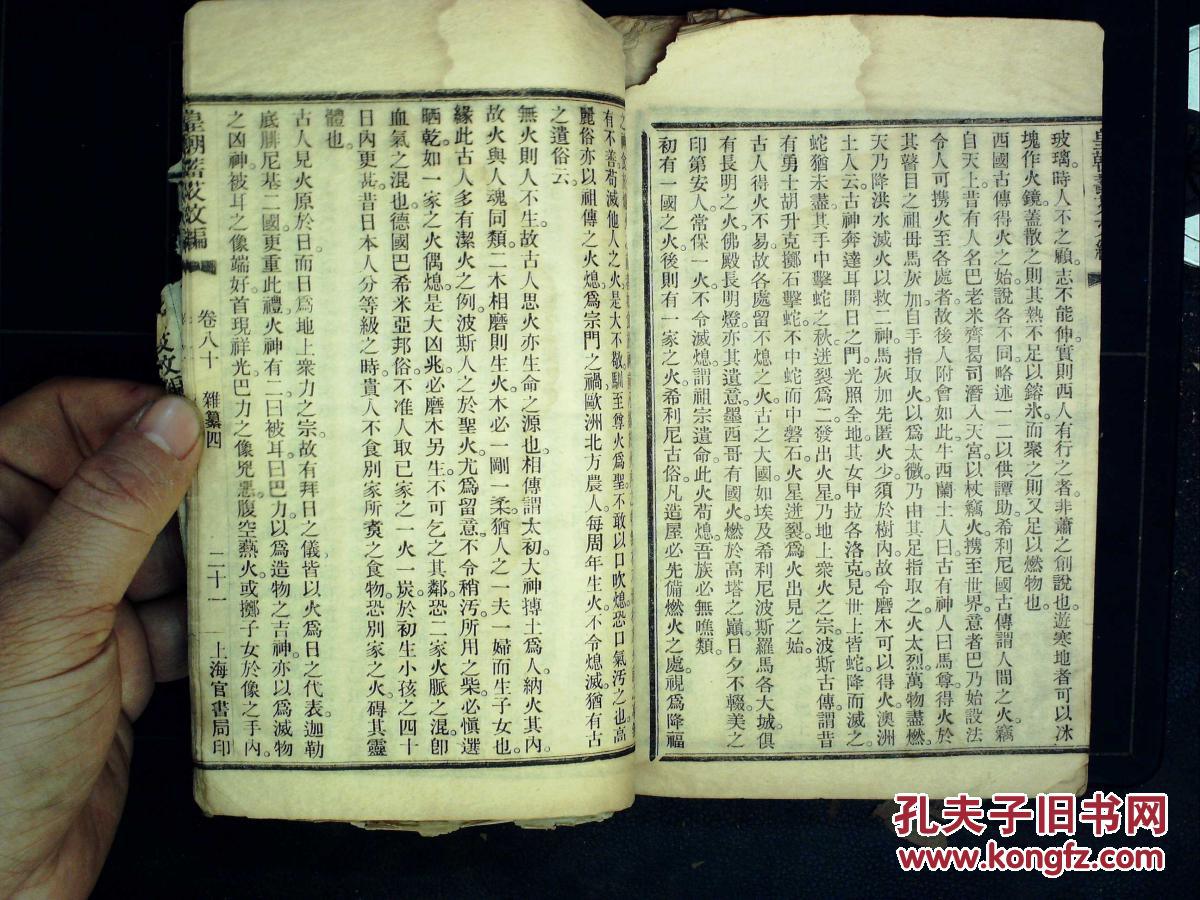 玻璃。時人不之顧。志不能伸。實則西人有行之者。非蕭之創說也。遊寒地者。可以冰
塊作火鏡。蓋散之則其熱不足以鎔氷。而聚之則又足以燃物也。
西國古傳得火之始。說各不同。略述一二。以供譚助。希利尼國古傳。謂人間之火。竊
自天上。昔有人名巴老米齊曷司。潛入天宮。以杖竊火。携至世界。意者巴乃始設法
令人可携火至各處者。故後人附會如此。牛西蘭土人曰。古有神人曰馬尊。得火於
其瞽目之祖毋馬灰加。自手指取火。以爲太微。乃由其足指取之。火太烈。萬物盡燃。
天乃降洪水滅火。以救二神。馬灰加先匿火少須於樹內。故令磨木可以得火。澳洲
土人云。古神奔達耳開日之門。光照全地。其女甲拉各洛克見世上皆蛇。降而滅之。
蛇猶未盡。其手中擊蛇之秋。迸裂爲二。發出火星。乃地上衆火之宗。波斯古傳。謂昔
有勇士胡升克擲石擊蛇。不中蛇而中磐石。火星迸裂。爲火出見之始。
古人得火不易。故各處留不熄之火。古之大國。如埃及希利尼波斯羅馬各大城。俱
有長明之火。佛殿長明燈。亦其遺意。墨西哥有國火。燃於高塔之巔。日夕不輟。美之
印第安人。常保一火。不令滅熄。謂祖宗遺命。此火苟熄。吾族必無噍類。
初有一國之火。後則有一家之火。希利尼古俗。凡造屋必先備燃火之處。視爲降福
有不善。苟滅他人之火。是大不敬。馴至尊火爲聖。不敢以口吹熄。恐口氣汚之也。高
麗俗亦以祖傳之火熄。爲宗門之禍。歐洲北方農人。每周年生火。不令熄滅。猶有古
之遺俗云。
無火則人不生。故古人思火亦生命之源也。相傳謂太初。大神摶土爲人。納火其內。
故火與人魂同類。二木相磨則生火。木必一剛一柔。猶人之一夫一婦而生子女也。
緣此古人多有潔火之例。波斯人之於聖火。尤爲留意。不令稍汚。所用之柴。必愼選
晒乾。如一家之火偶熄。是大凶兆。必磨木另生。不可乞之其鄰。恐二家火脈之混。卽
血氣之混也。德國巴希米亞邦俗。不准人取已家之一火一炭。於初生小孩之四十
日內更甚。昔日本人分等級之時。貴人不食別家所爨之食物。恐別家之火。碍其靈
體也。
古人見火原於日。而日爲地上衆力之宗。故有拜日之儀。皆以火爲日之代表。迦勒
底腓尼基二國。更重此禮。火神有二。曰被耳。曰巴力。以爲造物之吉神。亦以爲滅物
之凶神。被耳之像端好。首現祥光。巴力之像兇惡。腹空熱火。或擲子女於像之手內。
卷八十 雜纂四 二十一 上海官書局印
孔夫子旧书网
www.kongfz.com